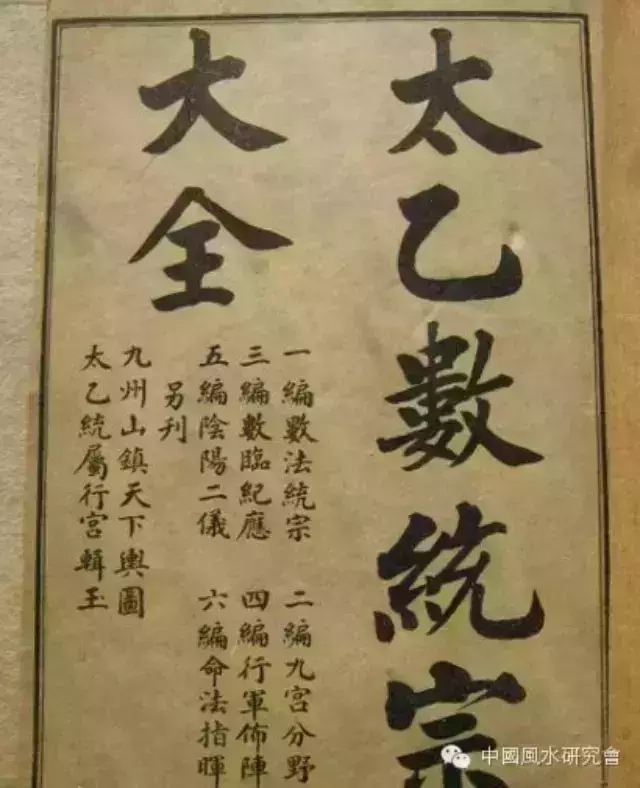 太乙數統宗
大全
一編數法統宗 二編九宮分野
三編數臨紀應 四編行軍佈陣
五編陰陽二儀 六編命法指暉
另刊
九州山鎮天下輿圖
太乙統屬行宮輯玉
中國風水研究會